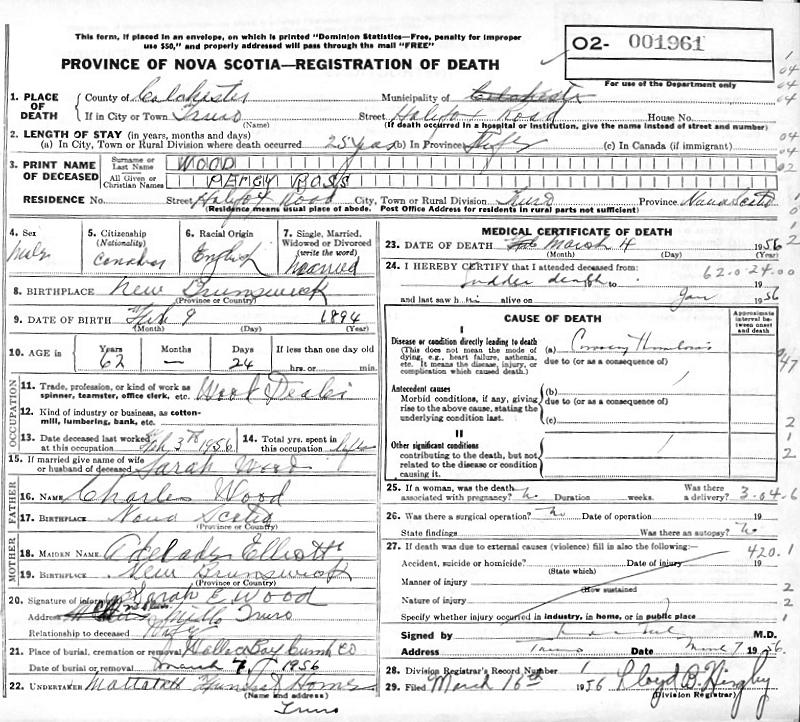 This form, if placed in an envelope, on which is printed "Dominion Statistics—Free, penalty for improper
use $50," and properly addressed will pass through the mail "FREE"
PROVINCE OF NOVA SCOTIA—REGISTRATION OF DEATH
02- 001961
For use of the Department only
1. PLACE OF DEATH County of Colchester Municipality of Colchester
If in City or Town Truro Street Halifax Road House No.
(Name) (If death occurred in a hospital or institution, give the name instead of street and number)
2. LENGTH OF STAY (in years, months and days)
(a) In City, Town or Rural Division where death occurred 25 yrs (b) In Province Life (c) In Canada (if immigrant)
3. PRINT NAME OF DECEASED Surname or Last Name WOOD
All Given or Christian Names PERCY ROSS
RESIDENCE No. Street Halifax Road City, Town or Rural Division Truro Province Nova Scotia
(Residence means usual place of abode. Post Office Address for residents in rural parts not sufficient)
4. Sex Male
5. Citizenship (Nationality) Canadian
6. Racial Origin English
7. Single, Married, Widowed or Divorced (write the word) Married
8. BIRTHPLACE New Brunswick
(Province or Country)
9. DATE OF BIRTH Feb 9 1894
(Month) (Day) (Year)
10. AGE in Years 62 Months — Days 24 If less than one day old
hrs. or min.
OCCUPATION
11. Trade, profession, or kind of work as spinner, teamster, office clerk, etc. Wood Dealer
12. Kind of industry or business, as cotton-mill, lumbering, bank, etc.
13. Date deceased last worked at this occupation Feb 3rd 1956
14. Total yrs. spent in this occupation
15. If married give name of wife or husband of deceased Sarah Wood
FATHER
16. NAME Charles Wood
17. BIRTHPLACE Nova Scotia
(Province or Country)
MOTHER
18. MAIDEN NAME Elliott
19. BIRTHPLACE New Brunswick
(Province or Country)
20. Signature of informant Sarah E. Wood
Address Truro
Relationship to deceased Wife
21. Place of burial, cremation or removal Wallace Bay Cumb Co
Date of burial or removal March 7, 1956
22. UNDERTAKER Mattatall Funeral Home
(Name and address)
Truro
MEDICAL CERTIFICATE OF DEATH
23. DATE OF DEATH March 4 1956
(Month) (Day) (Year)
24. I HEREBY CERTIFY that I attended deceased from:
62.024.00
Sudden death to 19
and last saw h alive on Jan 1956
CAUSE OF DEATH
Approximate interval between onset and death
I
Disease or condition directly leading to death (a) Coronary Thrombosis
(This does not mean the mode of dying, e.g., heart failure, asthenia, etc. It means the disease, injury, or complication which caused death.)
due to (or as a consequence of)
Antecedent causes (b)
Morbid conditions, if any, giving rise to the above cause, stating the underlying condition last.
due to (or as a consequence of)
(c)
II
Other significant conditions
contributing to the death, but not related to the disease or condition causing it.
25. If a woman, was the death associated with pregnancy? No Duration weeks. Was there a delivery? 3.04.6
26. Was there a surgical operation? No Date of operation 19
State findings Was there an autopsy? No
27. If death was due to external causes (violence) fill in also the following: 420.1
Accident, suicide or homicide? Date of injury 19
(State which)
Manner of injury
(How sustained
Nature of injury
Specify whether injury occurred in industry, in home, or in public place
Signed by M.D.
Address Truro Date March 7 1956
28. Division Registrar's Record Number 1
29. Filed March 16th 1956 Lloyd B. Higby
(Division Registrar)